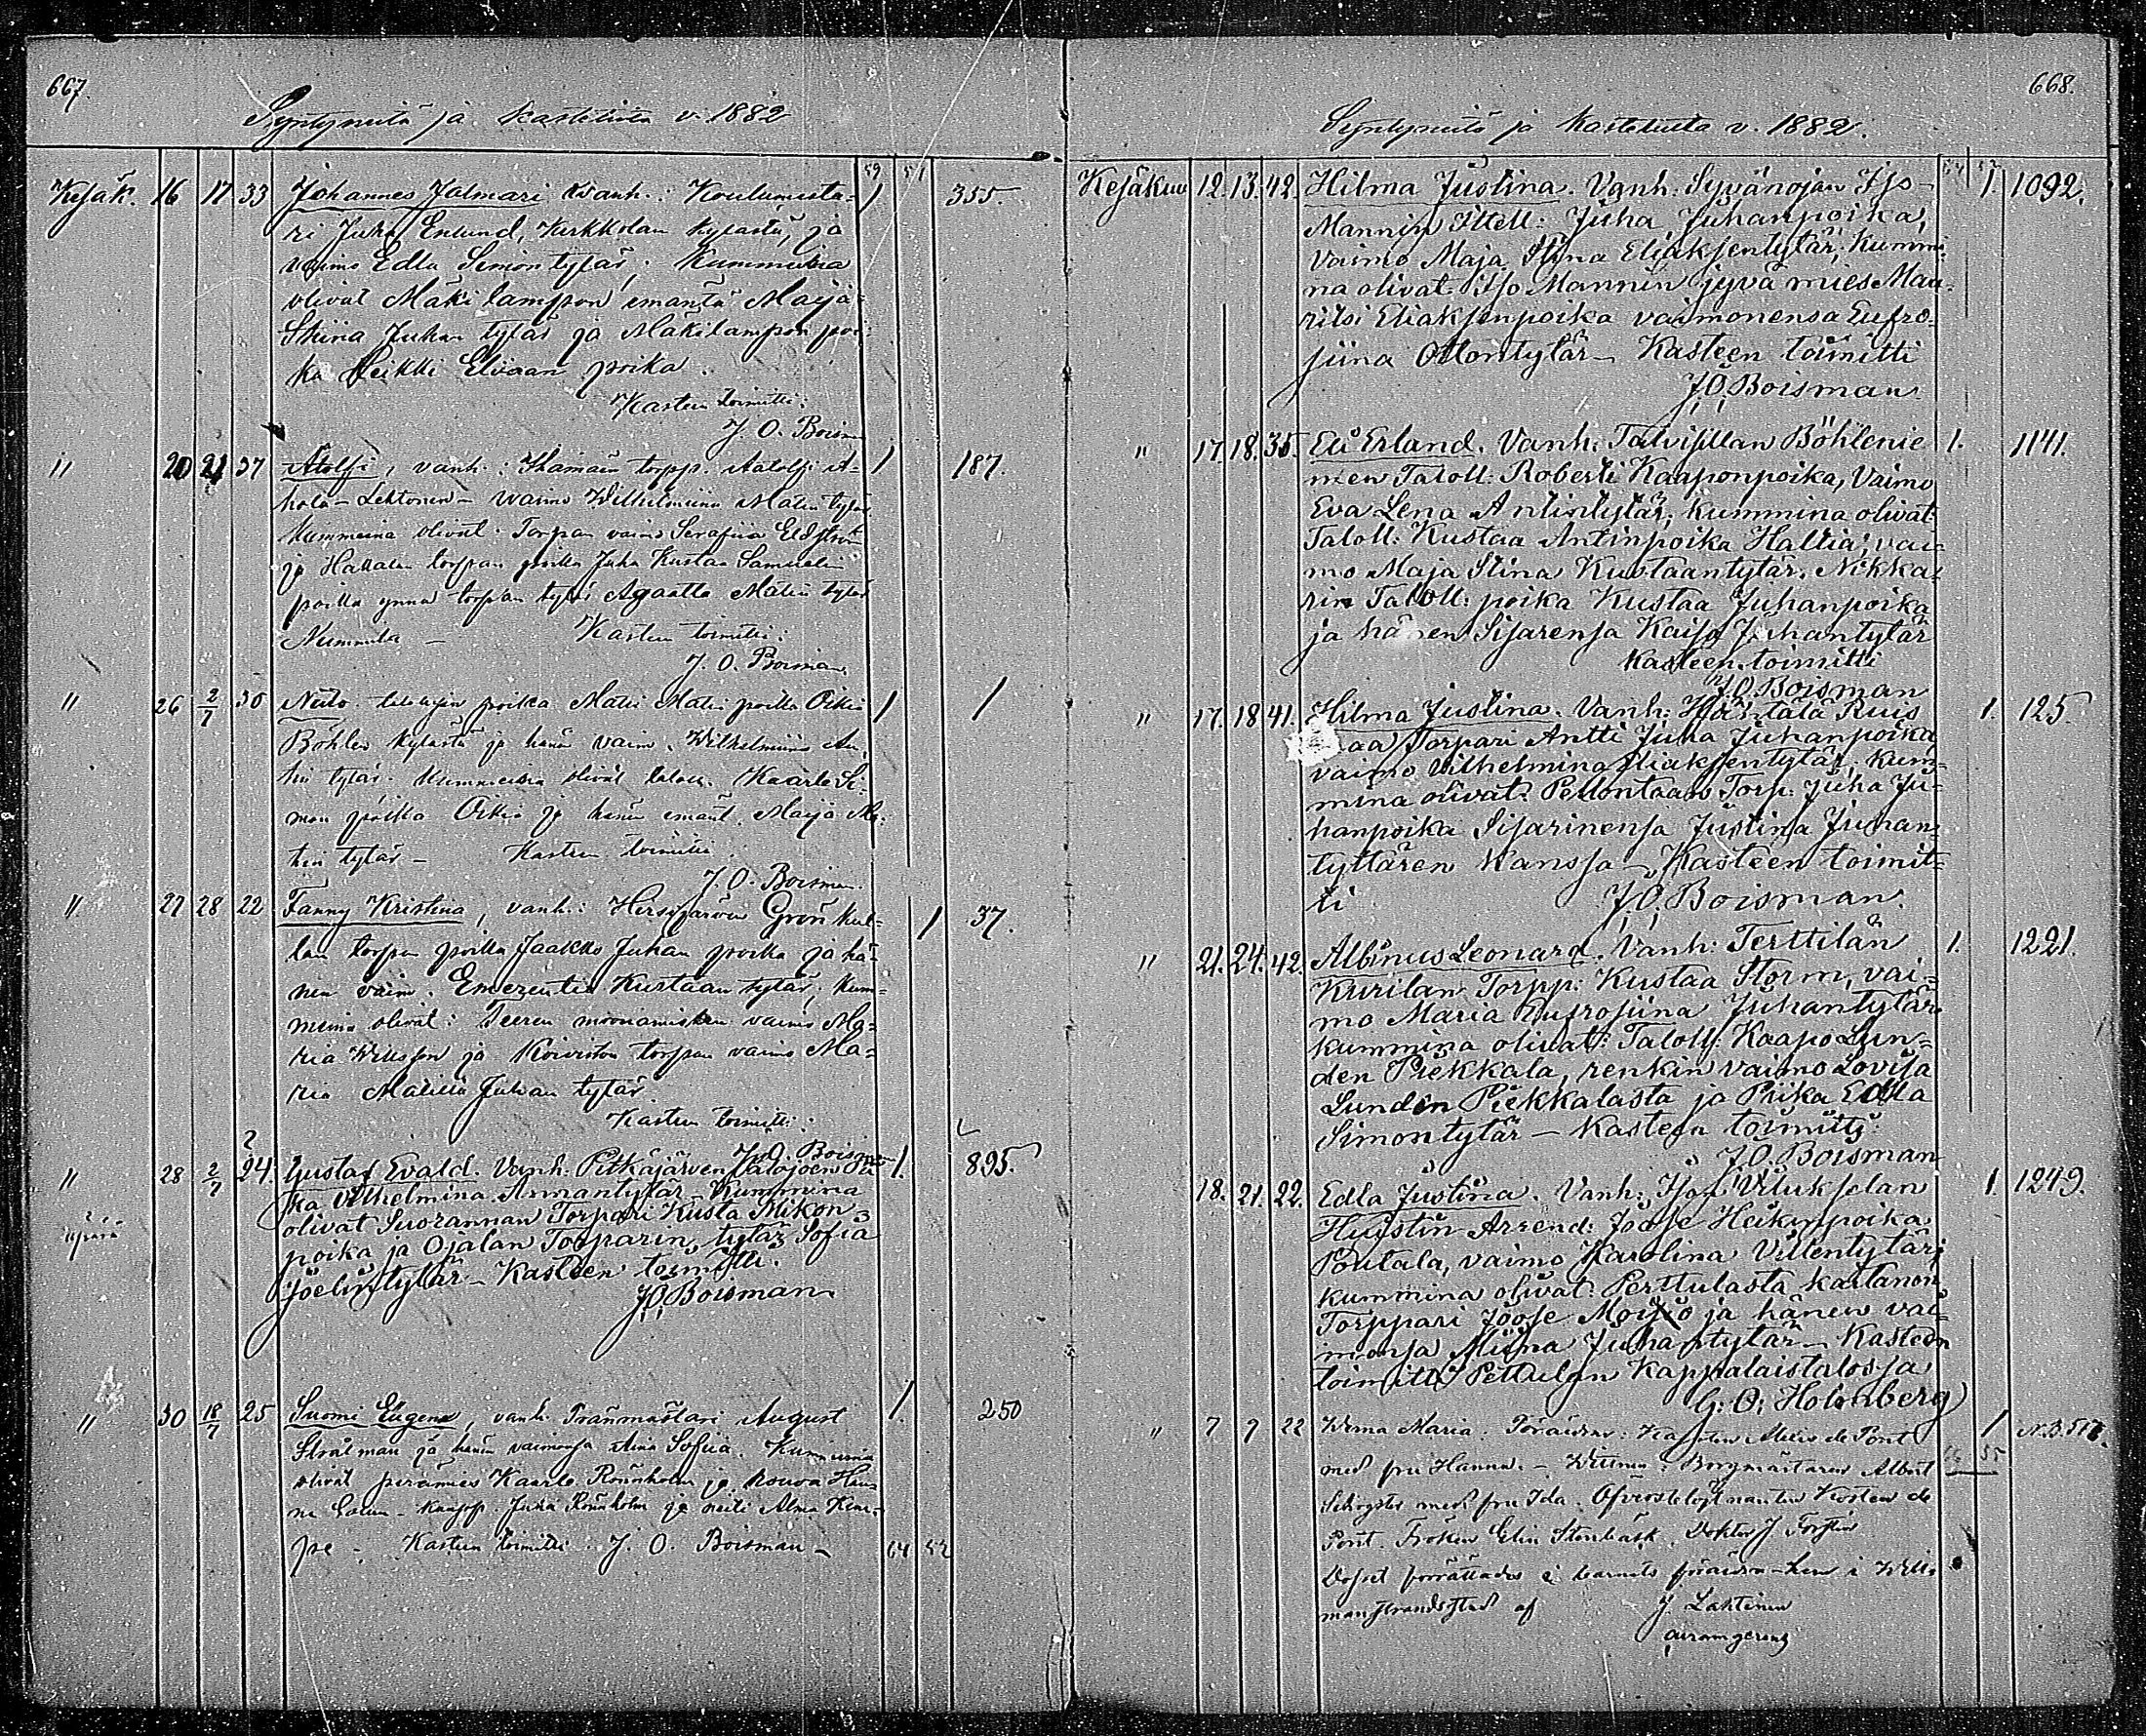 667.
Syntyneitä ja kastetuita v. 1882
59 51
Kesäk. 16 17 33 Johannes Jalmari Wanh.: Koulumesta- 1 355.
ri Juha Enlund, Kirkkolan kylästä, ja
vaimo Edla Simon tytär; Kummeina
olivat Mäkilammon emäntä Maija
Stiina Juhan tytär ja Mäkilammon poi-
ka Heikki Eliaan poika.
Kasteen toimitti:
J. O. Boism
" 20 21 37 Atolfi, vanh.: torpp. Aatolfi A-
hola-Lehtonen - vaimo Wilhelmiina Matin tytär 1 187.
Kummeina olivat Torpan vaimo Serafiia
ja torpan poika Juha Kustaa Samuelin
poika ynnä torpan tytär Agaatta Matin tytär
Nummila - Kasteen toimitti:
J. O. Boisman.
" 26 2/7 30 Niilo. talollisen poika Matti Matin poika Oikia 1 /
Böhlen kylästä ja hänen vaim. Wilhelmiina An-
tin tytär. Kummeina olivat taloll. Kaarle Si-
mon poika Oikia ja hänen emänt. Maija Ma-
tin tytär - Kasteen toimitti:
J. O. Boisman.
" 27 28 22 Fanny Kristina, vanh.: Hirsijärven Grönkul- 1 37.
lan torpan poika Jaakko Juhan poika ja hä-
nen vaim. Emerentia Kustaan tytär; Kum-
meina olivat: Teeren muonamiehen vaimo Ma-
ria Willsson ja Koiviston torpan vaimo Ma-
ria Matilda Juhan tytär
Kasteen toimitti:
J. O. Boism
" 28 2/7 24. Gustaf Evald. Vanh. Pitkäjärven Palojoen Pii- 1. 895.
ka Vilhelmina Annantytär. Kummina
olivat Suorannan Torpari Kusta Mikon
poika ja Ojalan Torparin tytär Sofia
Joelintytär - Kasteen toimitti.
J.O. Boisman.
" 30 18/7 25 Suomi Eugen, vanh. Tränmästari August 1. 250
Strålman ja hänen vaimonsa Aina Sofiia. Kummeina
olivat perämies Kaarlo Rönnholm ja rouva Han-
na - kaupp. Juha Rönnholm ja neiti Alma Kem-
pe - Kasteen toimitti: J. O. Boisman - 64 52
668.
Syntyneitä ja kastetuita v. 1882.
Kesäkuu 12. 13. 42. Hilma Justina. Vanh: Syvänojan Iso- 1. 1092.
Mannin Ittell: Juha Juhanpoika,
vaimo Maja Stina Eliaksentytär; Kummi-
na olivat: Iso Mannin jyvä mies Mau-
ritsi Eliaksenpoika vaimonensa Eufro-
siina Ottontytär - Kasteen toimitti
J. O. Boisman.
" 17. 18. 35. Eli Erland. Vanh: Talvisillan Böhlenie 1. 1141.
men Taloll: Roberti Kaaponpoika, Vaimo
Eva Lena Antintytär; kummina olivat
Taloll: Kustaa Antinpoika Hallia, vai-
mo Maja Stina Kustaantytär. Nikka-
rin Taloll: poika Kustaa Juhanpoika
ja hänen Sisarensa Kaisa Juhantytär
Kasteen toimitti
J.O. Boisman
" 17. 18 41. Hilma Justina. Vanh: Häntälä Ruis 1. 125.
maa Torpari Antti Juha Juhanpoika
vaimo Vilhelmina Eliaksentytär; Kum-
mina olivat: Pellontaan Torp: Juha Ju-
hanpoika Sisarinensa Justina Juhan-
tyttären kanssa - Kasteen toimit-
ti J. O. Boisman.
" 21. 24. 42. Albinus Leonard. Vanh: Terttilän 1. 1221.
Kurilan Torpp: Kustaa Storm, vai-
mo Maria Eufrosiina Juhantytär
kummina olivat: Taloll: Kaapo Lun-
den Piekkala, renkin vaimo Lovisa
Lunden Piekkalasta ja Piika Edla
Simontytär - Kasteen toimitti
J.O. Boisman
18. 21. 22. Edla Justina. Vanh: Ison Viluksclan 1. 1249.
Huistin Arrend: Joose Heikinpoika
Poutala, vaimo Karolina Villentytär;
kummina olivat: Perttulasta kartanon
Torppari Joose Moisio ja hänen vai-
monsa Miina Juhantytär - Kasteen
toimitti Pettulan Kappalaistalossa
G. O. Holmberg
" 7 9 22 Wilma Maria. Föräldrar: Kapten Alexis de Pont 1 N.B. 517.
med fru Hanna. - Vittnen: Borgmästaren Albert
med fru Ida. Öfverstelöjtnanten Kosten de
Pont. Fröken Elin Stenbäck. Doktor J. Forstén
Dopet förrättades i barnets föräldra-hem i Willi-
manstrands stad af J. Lahtinen